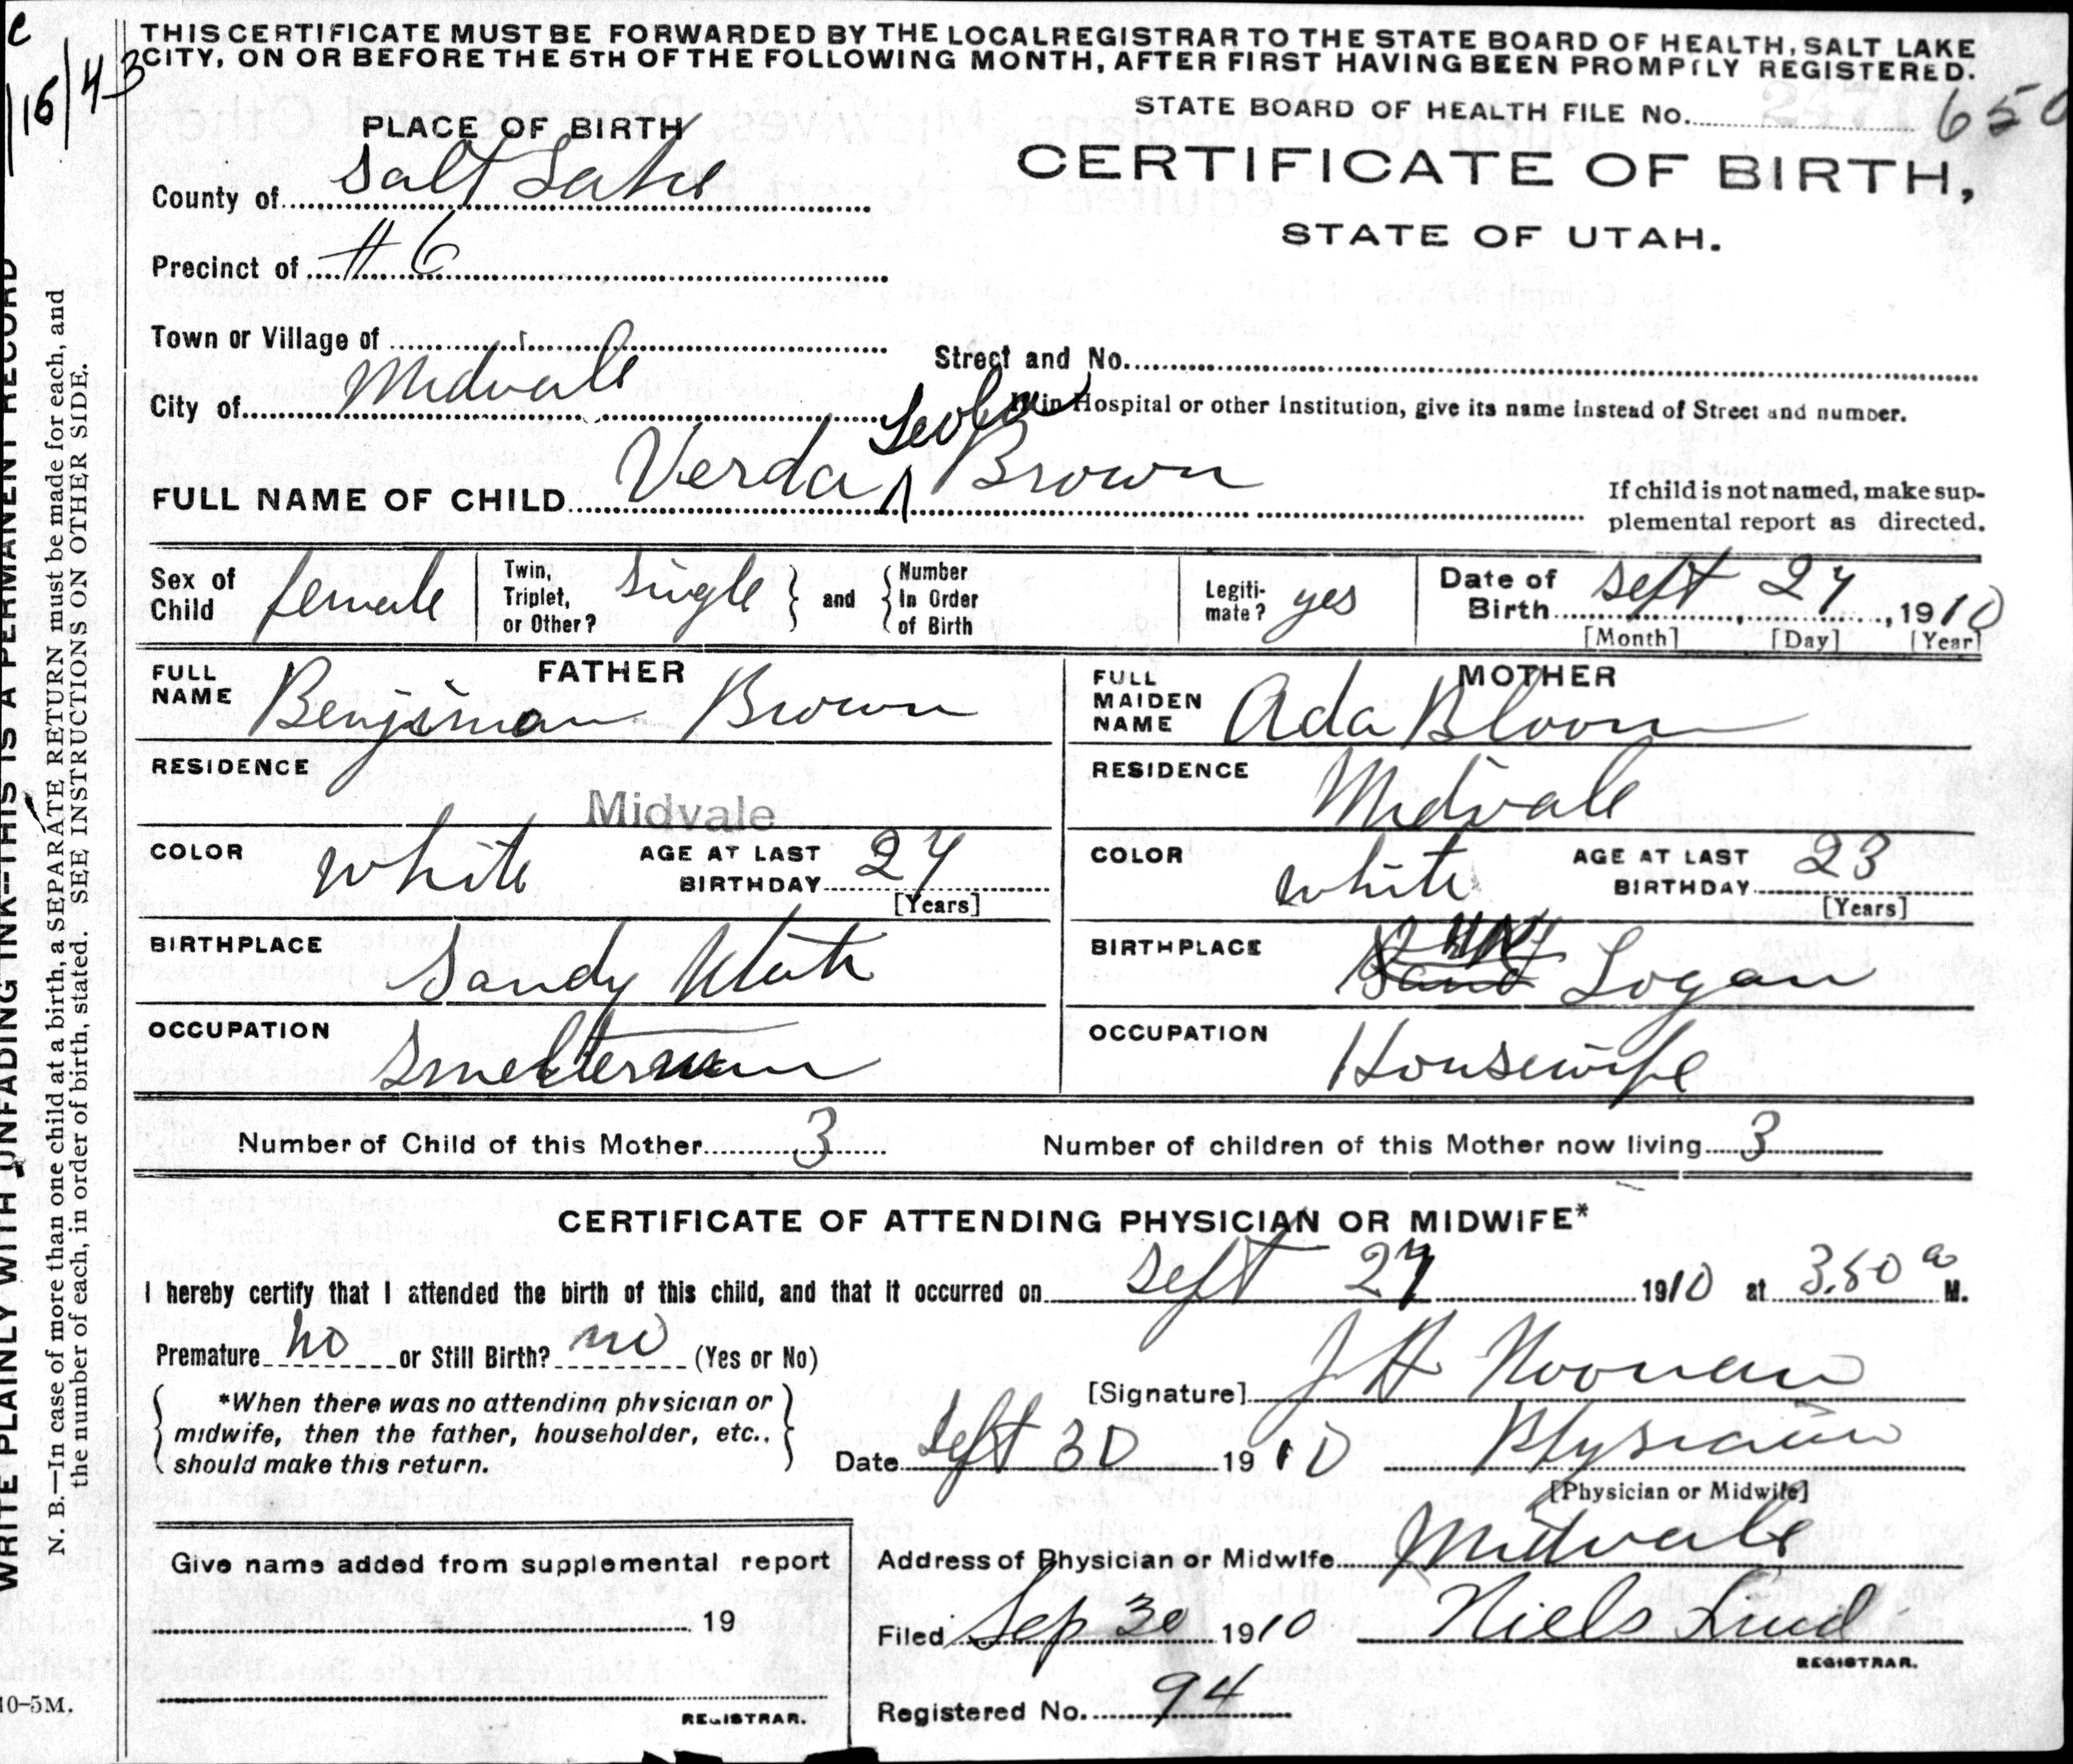 THIS CERTIFICATE MUST BE FORWARDED BY THE LOCAL REGISTRAR TO THE STATE BOARD OF HEALTH, SALT LAKE
CITY, ON OR BEFORE THE 5TH OF THE FOLLOWING MONTH, AFTER FIRST HAVING BEEN PROMPTLY REGISTERED.
16/43
STATE BOARD OF HEALTH FILE No. 650
PLACE OF BIRTH
CERTIFICATE OF BIRTH,
STATE OF UTAH.
County of Salt Lake
Precinct of #6
Town or Village of
Street and No.
City of Midvale
in Hospital or other Institution, give its name instead of Street and number.
FULL NAME OF CHILD Verda Brown
If child is not named, make sup-
plemental report as directed.
Sex of Child female
Twin, Triplet, or Other? single and Number In Order of Birth
Legiti-mate? yes
Date of Birth Sept 27, 1910
[Month] [Day] [Year]
FATHER
FULL NAME Benjiman Brown
RESIDENCE Midvale
COLOR white AGE AT LAST BIRTHDAY 27
[Years]
BIRTHPLACE Sandy Utah
OCCUPATION Smelterman
MOTHER
FULL MAIDEN NAME Ada Bloom
RESIDENCE Midvale
COLOR white AGE AT LAST BIRTHDAY 23
[Years]
BIRTHPLACE Logan
OCCUPATION Housewife
Number of Child of this Mother 3 Number of children of this Mother now living 3
CERTIFICATE OF ATTENDING PHYSICIAN OR MIDWIFE*
I hereby certify that I attended the birth of this child, and that it occurred on Sept 27 1910 at 3.50 a M.
Premature no or Still Birth? no (Yes or No)
[Signature] J H Noonan
*When there was no attending physician or
midwife, then the father, householder, etc.,
should make this return.
Date Sept 30 1910 Physician
[Physician or Midwife]
Address of Physician or Midwife Midvale
Give name added from supplemental report
19
REGISTRAR.
Filed Sep 30 1910 Niels Lind
REGISTRAR.
Registered No. 94
WRITE PLAINLY WITH UNFADING INK—THIS IS A PERMANENT RECORD
N. B.—In case of more than one child at a birth, a SEPARATE RETURN must be made for each, and
the number of each, in order of birth, stated. SEE INSTRUCTIONS ON OTHER SIDE.
10-5M.